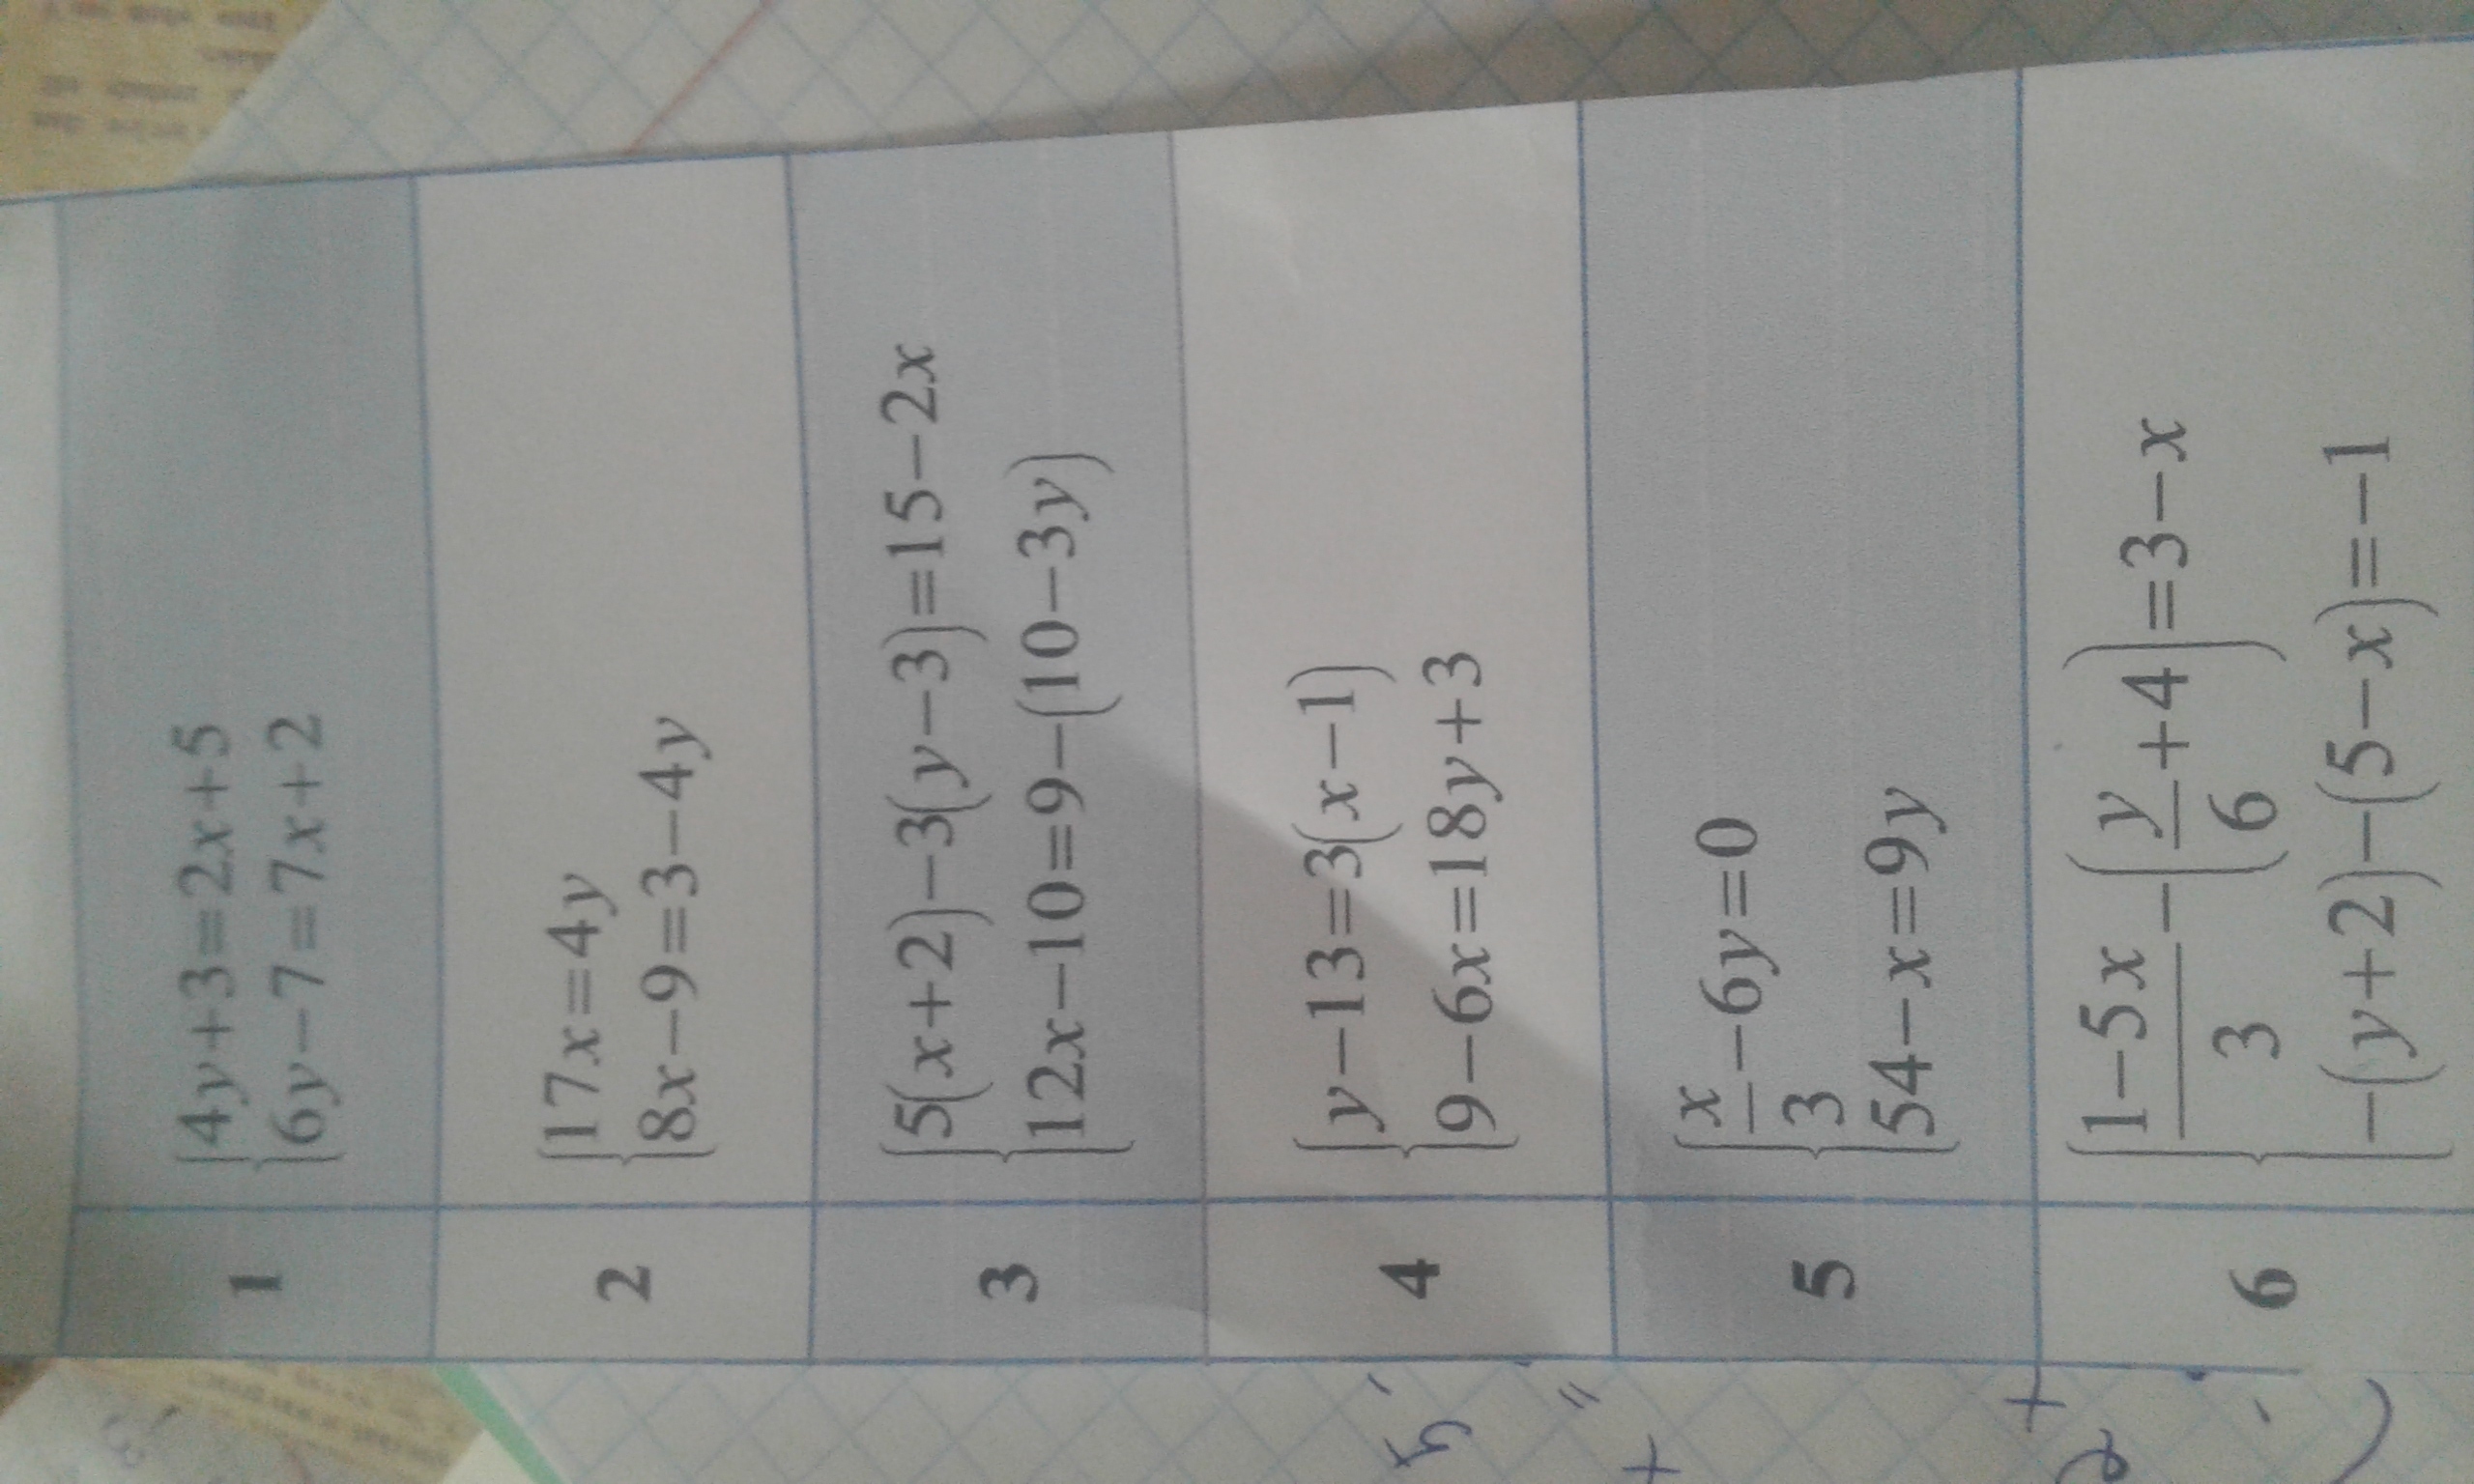 1
4y+3=2x+5
6y−7=7x+2
2
17x=4y
8x−9=3−4y
3
5(x+2)−3(y−3)=15−2x
12x−10=9−(10−3y)
4
y−13=3(x−1)
9−6x=18y+3
5
x/3−6y=0
54−x=9y
6
(1−5x)/3−(y/6+4)=3−x
−(y+2)−(5−x)=−1